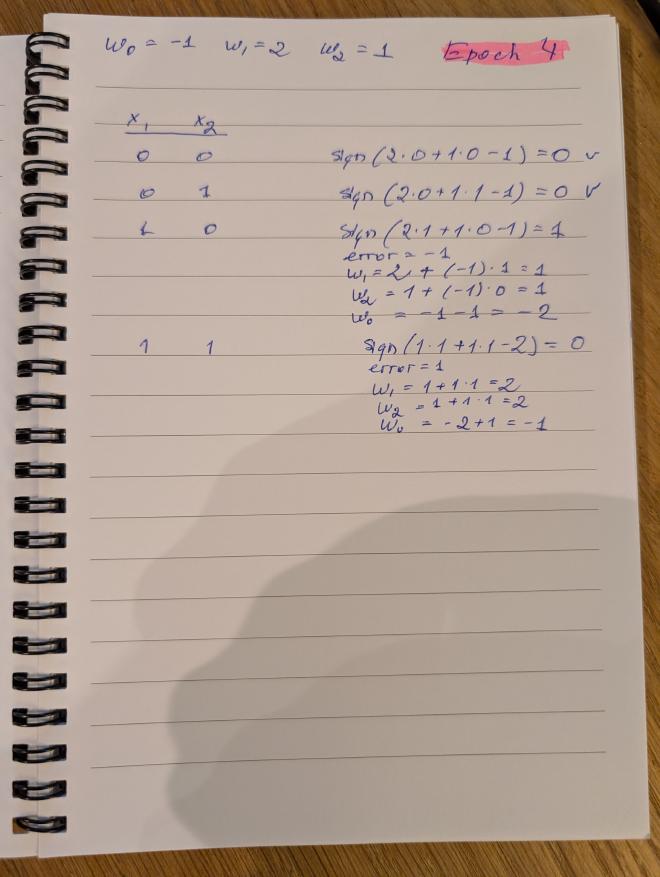 w₀ = -1 w₁ = 2 w₂ = 1 Epoch 4
x₁ x₂
0 0 sign (2·0+1·0-1) = 0 v
0 1 sign (2·0+1·1-1) = 0 v
1 0 sign (2·1+1·0-1) = 1
error = -1
w₁ = 2 + (-1)·1 = 1
w₂ = 1 + (-1)·0 = 1
w₀ = -1-1 = -2
1 1 sign (1·1+1·1-2) = 0
error = 1
w₁ = 1+1·1 = 2
w₂ = 1+1·1 = 2
w₀ = -2+1 = -1